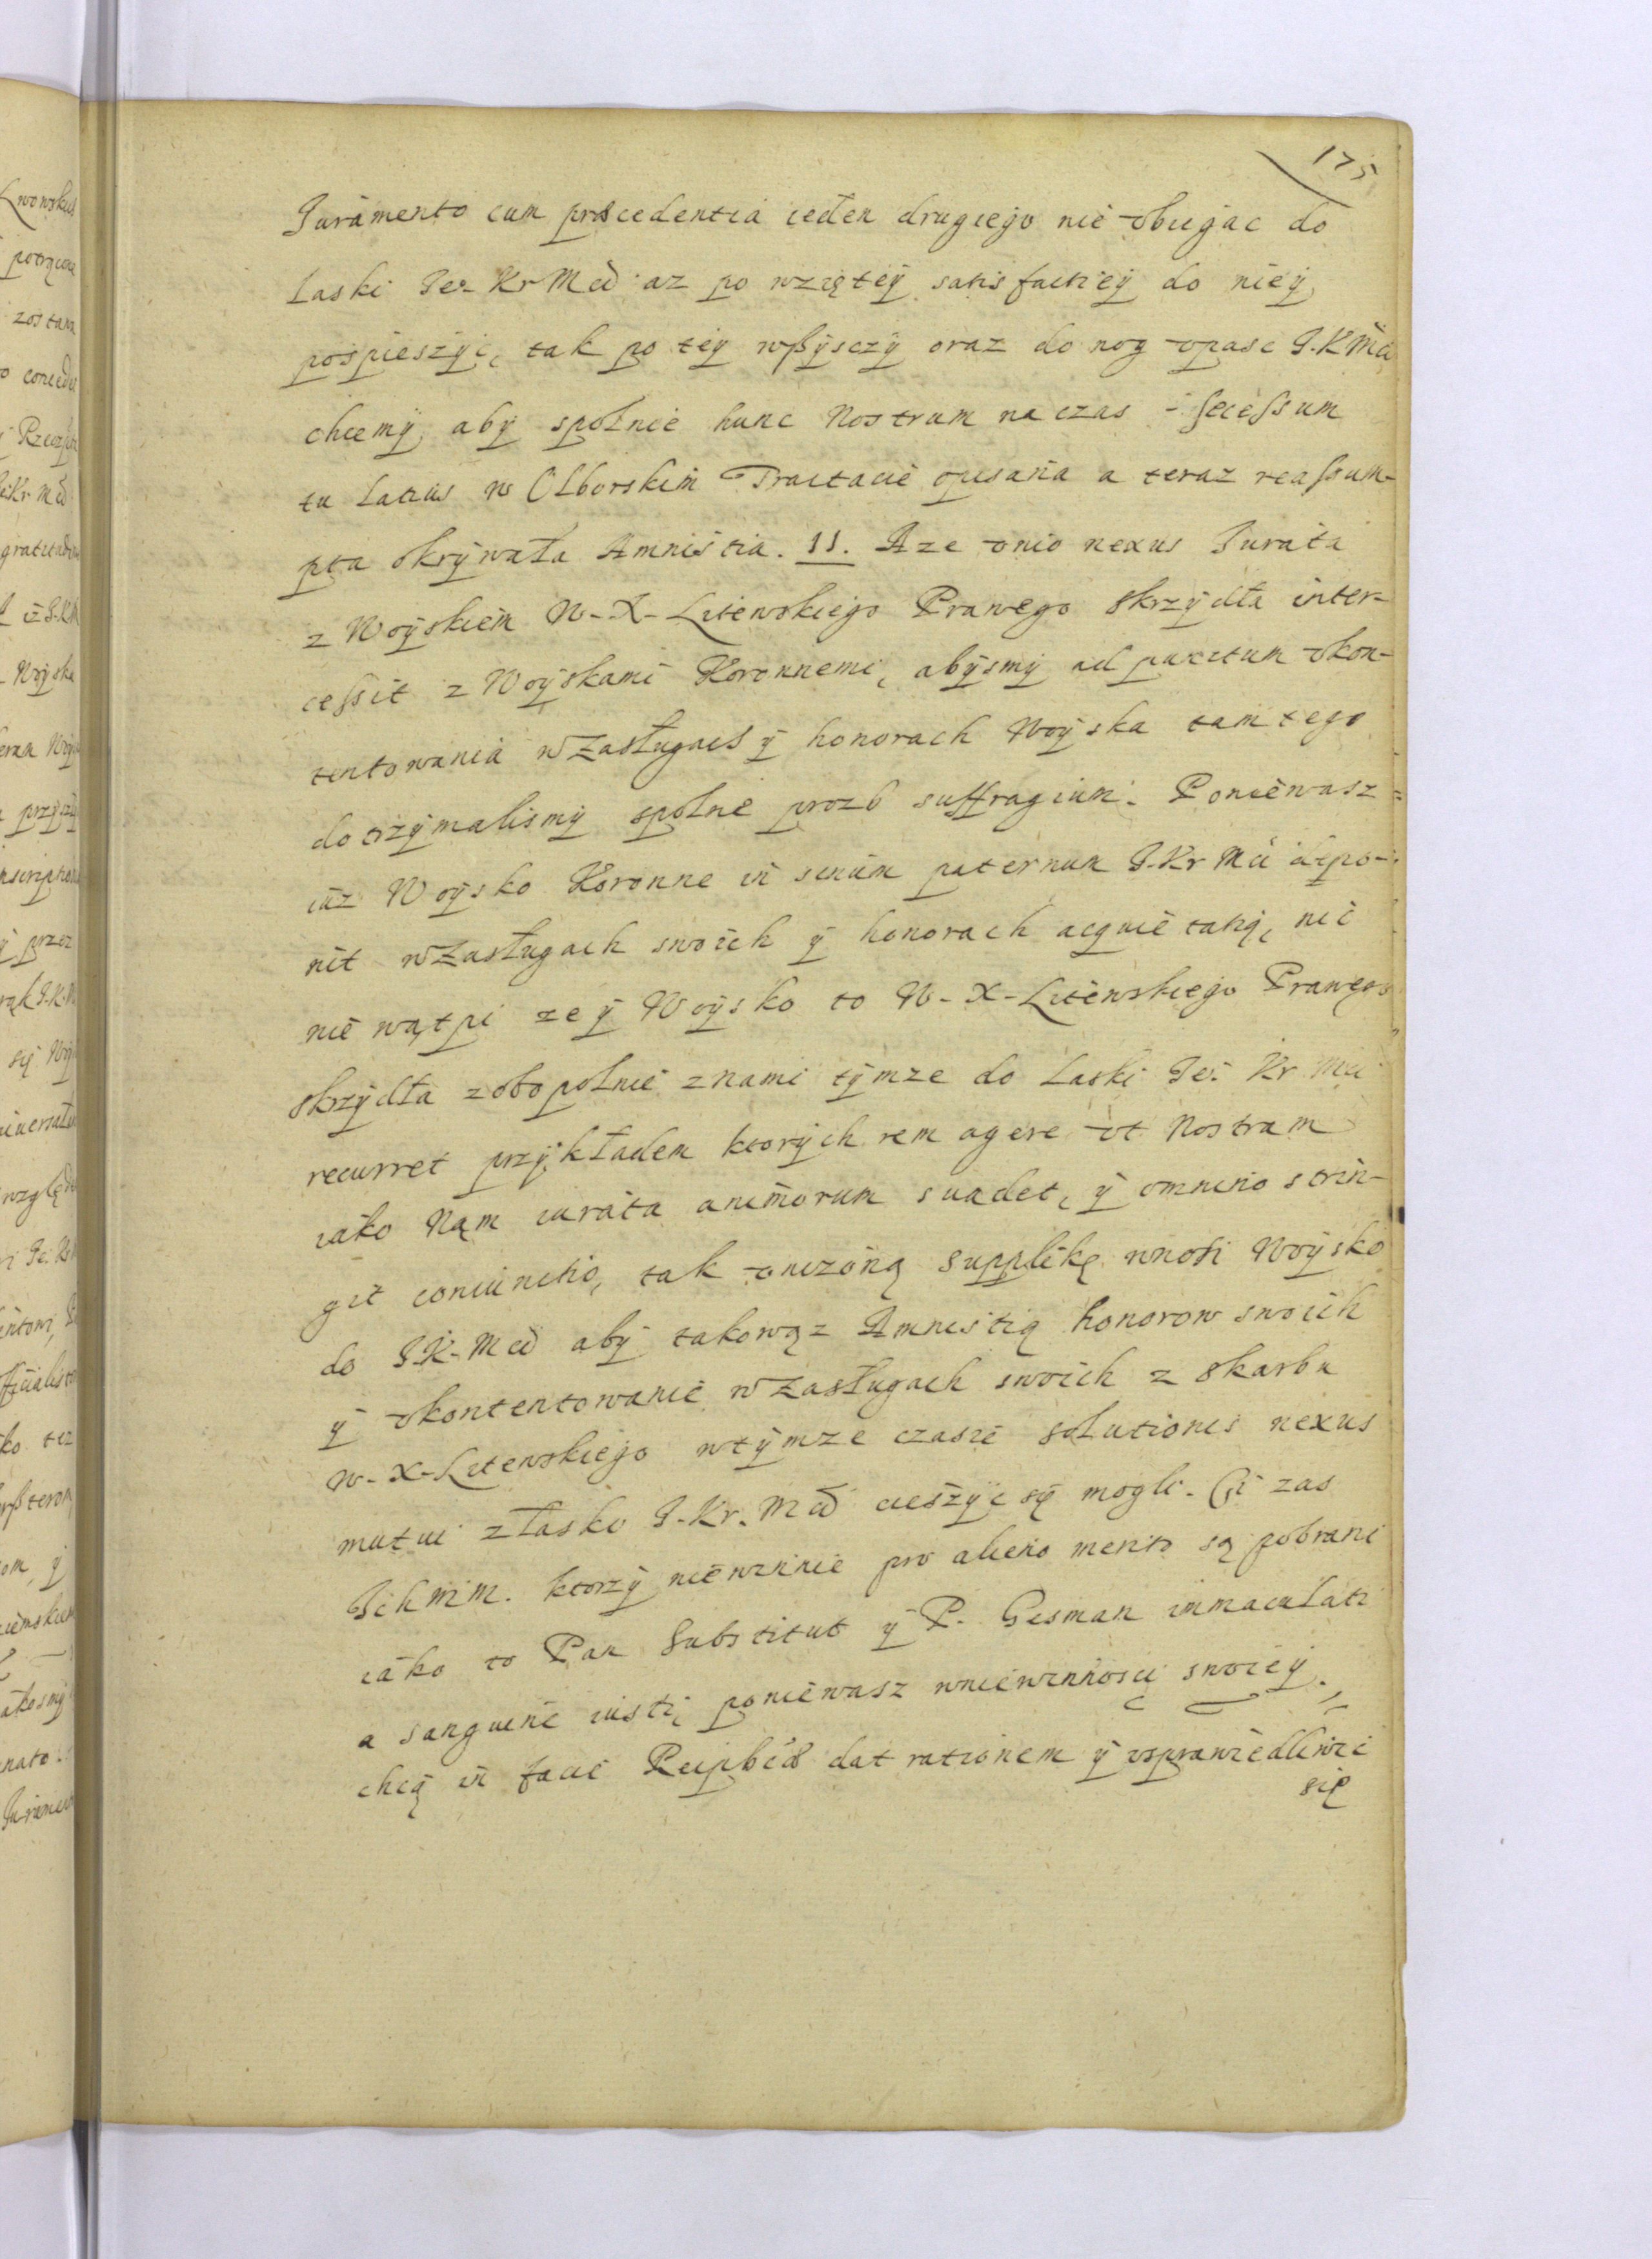 175
Juramento cum præcedentia ieden drugiego nie vbiegac do
Laski Je° Kr Mci az po wziętey satisfactiey do niey
pospieszyc, tak po tey wszysczy oraz do nog vpasc J.K Mci
chcemy, aby społnie hunc Nostrum na czas secessum
tu latius w Olborskim Tractacie opisana a teraz reassum-
pta okrywała Amnistia. 11. A ze vnio nexus Jurata
z Woyskiem W-X-Litewskiego Prawego skrzydła inter-
cessit z Woyskami Koronnemi, abysmy ad punctum vkon-
tentowania w zasługach y honorach Woyska tamtego
dotrzymalismy społne prozb suffragium. Poniewasz
iuz Woysko Koronne in sinum paternum J.Kr Mci depo-
nit w zasługach swoich y honorach acquietatią, nic
nie wątpi ze y Woysko to W-X-Litewskiego Prawego
skrzydła zobopolnie z nami tymze do Laski Je° Kr Mci
recurret przykładem ktorych rem agere vt Nostram
iako Nam iurata animorum suadet, y omnino strin-
git coniunctio, tak vnizoną supplikę wnosi Woysko
do J.K-Mci aby takowąz Amnistią honorow swoich
y vkontentowanie w zasługach swoich z skarbu
W-X-Litewskiego w tymze czasie solutionis nexus
mutui z łasko J.Kr.Mci cieszyc się mogli. Ci zas
Ichmm. ktorzy niewinnie pro alieno merito są pobrani
iako to Pan Substitut y P. Gisman immaculati
a sanguine iusti, poniewasz w niewinnosci swoiey
chcą in facie Reipbcæ dat rationem y vsprawiedliwic
się